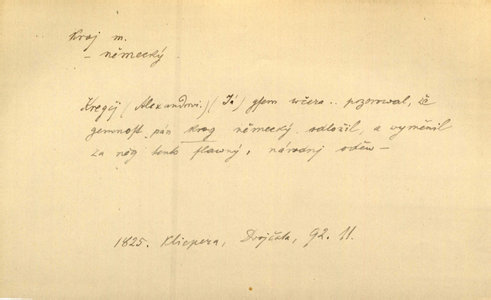 Kroj m.
– německý
Kregčj (Alexandrovi.) (Já) gsem včera.. pozorowal, že
gemnost pán krog německý odložil, a wyměnil
za něg tento slawný, národnj oděw –
1825. Klicpera, Dvojčata, 92. U.